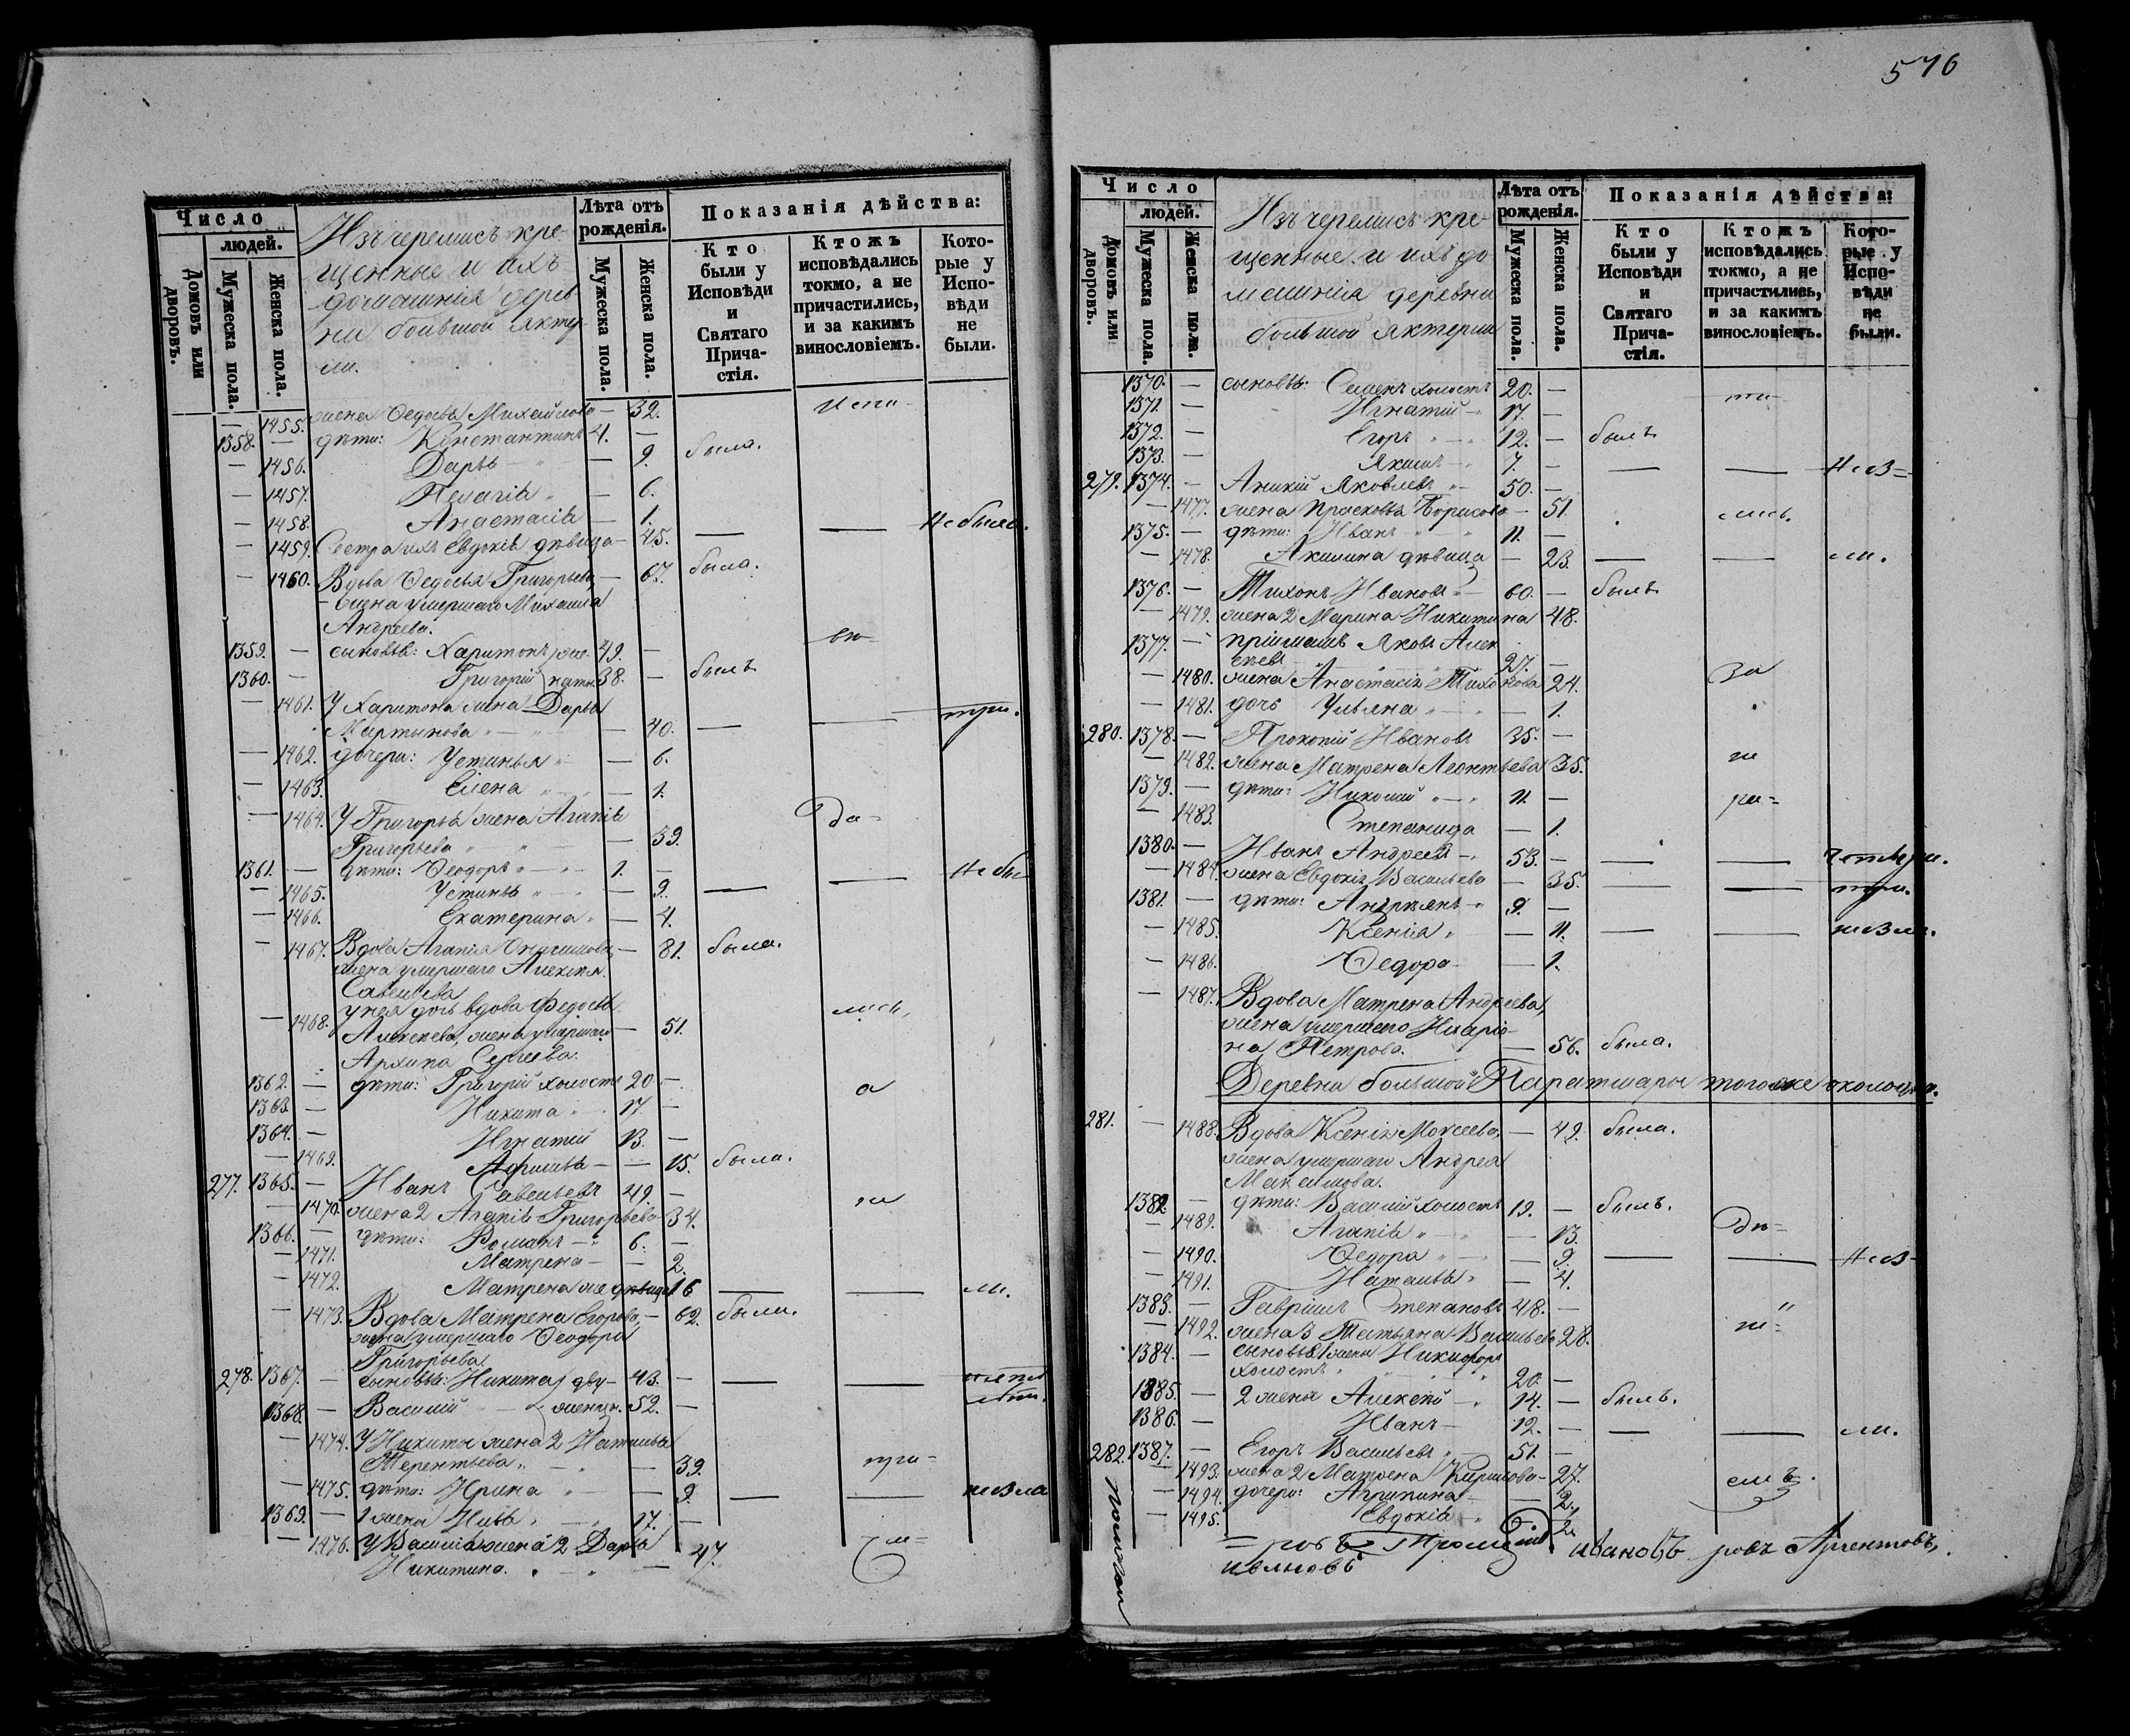 576
Число
людей.
Домовъ или дворовъ.
Мужеска пола.
Женска пола.
Изъ черемисъ кре-
щенные и ихъ
домашнія дерев-
ни большой Яктер-
ли.
Лѣта отъ рожденія.
Мужеска пола.
Женска пола.
Показанія дѣйства:
Кто были у Исповѣди и Святаго Прича-стія.
Ктожъ исповѣдались токмо, а не причастились, и за какимъ винословіемъ.
Кото-рые у Испо-вѣди не были.
— 1455. жена Ѳедосья Михайлова — 32. испо-
1358. — дѣти: Константинъ 4. —
— 1456. Дарья — 9. была.
— 1457. Пелагія — 6.
— 1458. Анастасія — 1.
— 1459. Сестра ихъ Евдокія дѣвица — 45. — — Не была.
— 1460. Вдова Ѳедосья Григорьева, — 67. была.
жена умершаго Михаила
Андреева.
1359. — сыновья: Харитонъ же- 49. — вѣ-
1360. — Григорій наты. 38. — былъ
— 1461. У Харитона жена Дарья
Мартынова — 40. — — три.
— 1462. дочери: Устинья — 6.
— 1463. Елена — 1.
— 1464. У Григорья жена Агапія
Григорьева — 39. да-
1361. — дѣти: Ѳеодоръ 1. —
— 1465. Устинья — 9. — — Не бы
— 1466. Екатерина — 4.
— 1467. Вдова Агапія Онисимова, — 81. была.
жена умершаго Алексѣя
Савельева
— 1468. у нея дочь вдова Ѳедосья
Алексѣева, жена умершаго — 51. лись,
Архипа Сергеева.
1362. — дѣти: Григорій холостъ 20. —
1363. — Никита 17. — а
1364. — Игнатій 13. —
— 1469. Афимья — 15. была.
277. 1365. — Иванъ Савельевъ 49. —
— 1470. жена 2 Агапія Григорьева 34. не
1366. — дѣти: Романъ 6. —
— 1471. Матрена — 2.
— 1472. Матрена же дѣвица 16 — — ли.
— 1473. Вдова Матрена Егорова, — 62. была.
жена умершаго Ѳеодора
Григорьева.
278. 1367. — сыновья: Никита дву- 43. — — —
1368. — Василій женцы. 52. —
— 1474. У Никиты жена 2 Наталья
Терентьева. — 39. при-
— 1475. дѣти: Ирина — 9. — —
1369. — 1 жены Илья 17. —
— 1476. У Василія жена 2 Дарья
Никитина. — 47.
Число
людей.
Домовъ или дворовъ.
Мужеска пола.
Женска пола.
Изъ черемисъ кре-
щенные и ихъ до
машнія деревни
большой Яктерли
Лѣта отъ рожденія.
Мужеска пола.
Женска пола.
Показанія дѣйства:
Кто были у Исповѣди и Святаго Прича-стія.
Ктожъ исповѣдались токмо, а не причастились, и за какимъ винословіемъ.
Кото-рые у Испо-вѣди не были.
1370. — сыновья: Семенъ холостъ 20. —
1371. — Игнатій 17. —
1372. — Егоръ 12. — былъ
1373. — Якимъ 7. — — —
279. 1374. — Аникій Яковлевъ 50. —
— 1477. жена Прасковья Борисова — 51.
1375. — дѣти: Иванъ 11. —
— 1478. Акилина дѣвица — 23. — — ли.
1376. — Тихонъ Ивановъ 60. — былъ
— 1479. жена 2 Марина Никитина 48.
1377. — пріимышъ Яковъ Алек
сѣевъ 27. —
— 1480. жена Анастасія Тихонова 24. за
— 1481. дочь Ульяна — 1.
280. 1378. — Прокопій Ивановъ 35. —
— 1482. жена Матрена Леонтьева 35. не
1379. — дѣти: Николай 11. —
— 1483. Степанида — 1.
1380. — Иванъ Андреевъ 53. — — — четыре.
— 1484. жена Евдокія Васильева — 35. — — три.
1381. — дѣти: Андреянъ 9. —
— 1485. Ксенія — 11. — —
— 1486. Ѳедора — 1.
— 1487. Вдова Матрена Андреева,
жена умершаго Иларіо-
на Петрова. — 56. была.
Деревни большой Паратмары тогоже околодка.
281. — 1488. Вдова Ксенія Моисеева, — 49. была.
жена умершаго Андрея
Максимова.
1382 — дѣти: Василій холостъ 19. — былъ.
— 1489. Агапія — 13.
— 1490. Ѳедора — 9. — —
— 1491. Наталья — 4.
1383. — Гавріилъ Степановъ 48. —
— 1492. жена 3 Татьяна Васильева 28.
1384. — сыновья 1 жены Никифоръ
холостъ 20. —
1385. — 2 жены Алексѣй 14. — былъ.
1386. — Иванъ 12. — — — ли.
282. 1387. — Егоръ Васильевъ 51. —
— 1493. жена 2 Матрена Кирилова — 27.
— 1494. дочери: Агрипина — 2.
— 1495. Евдокія 2
Ивановъ